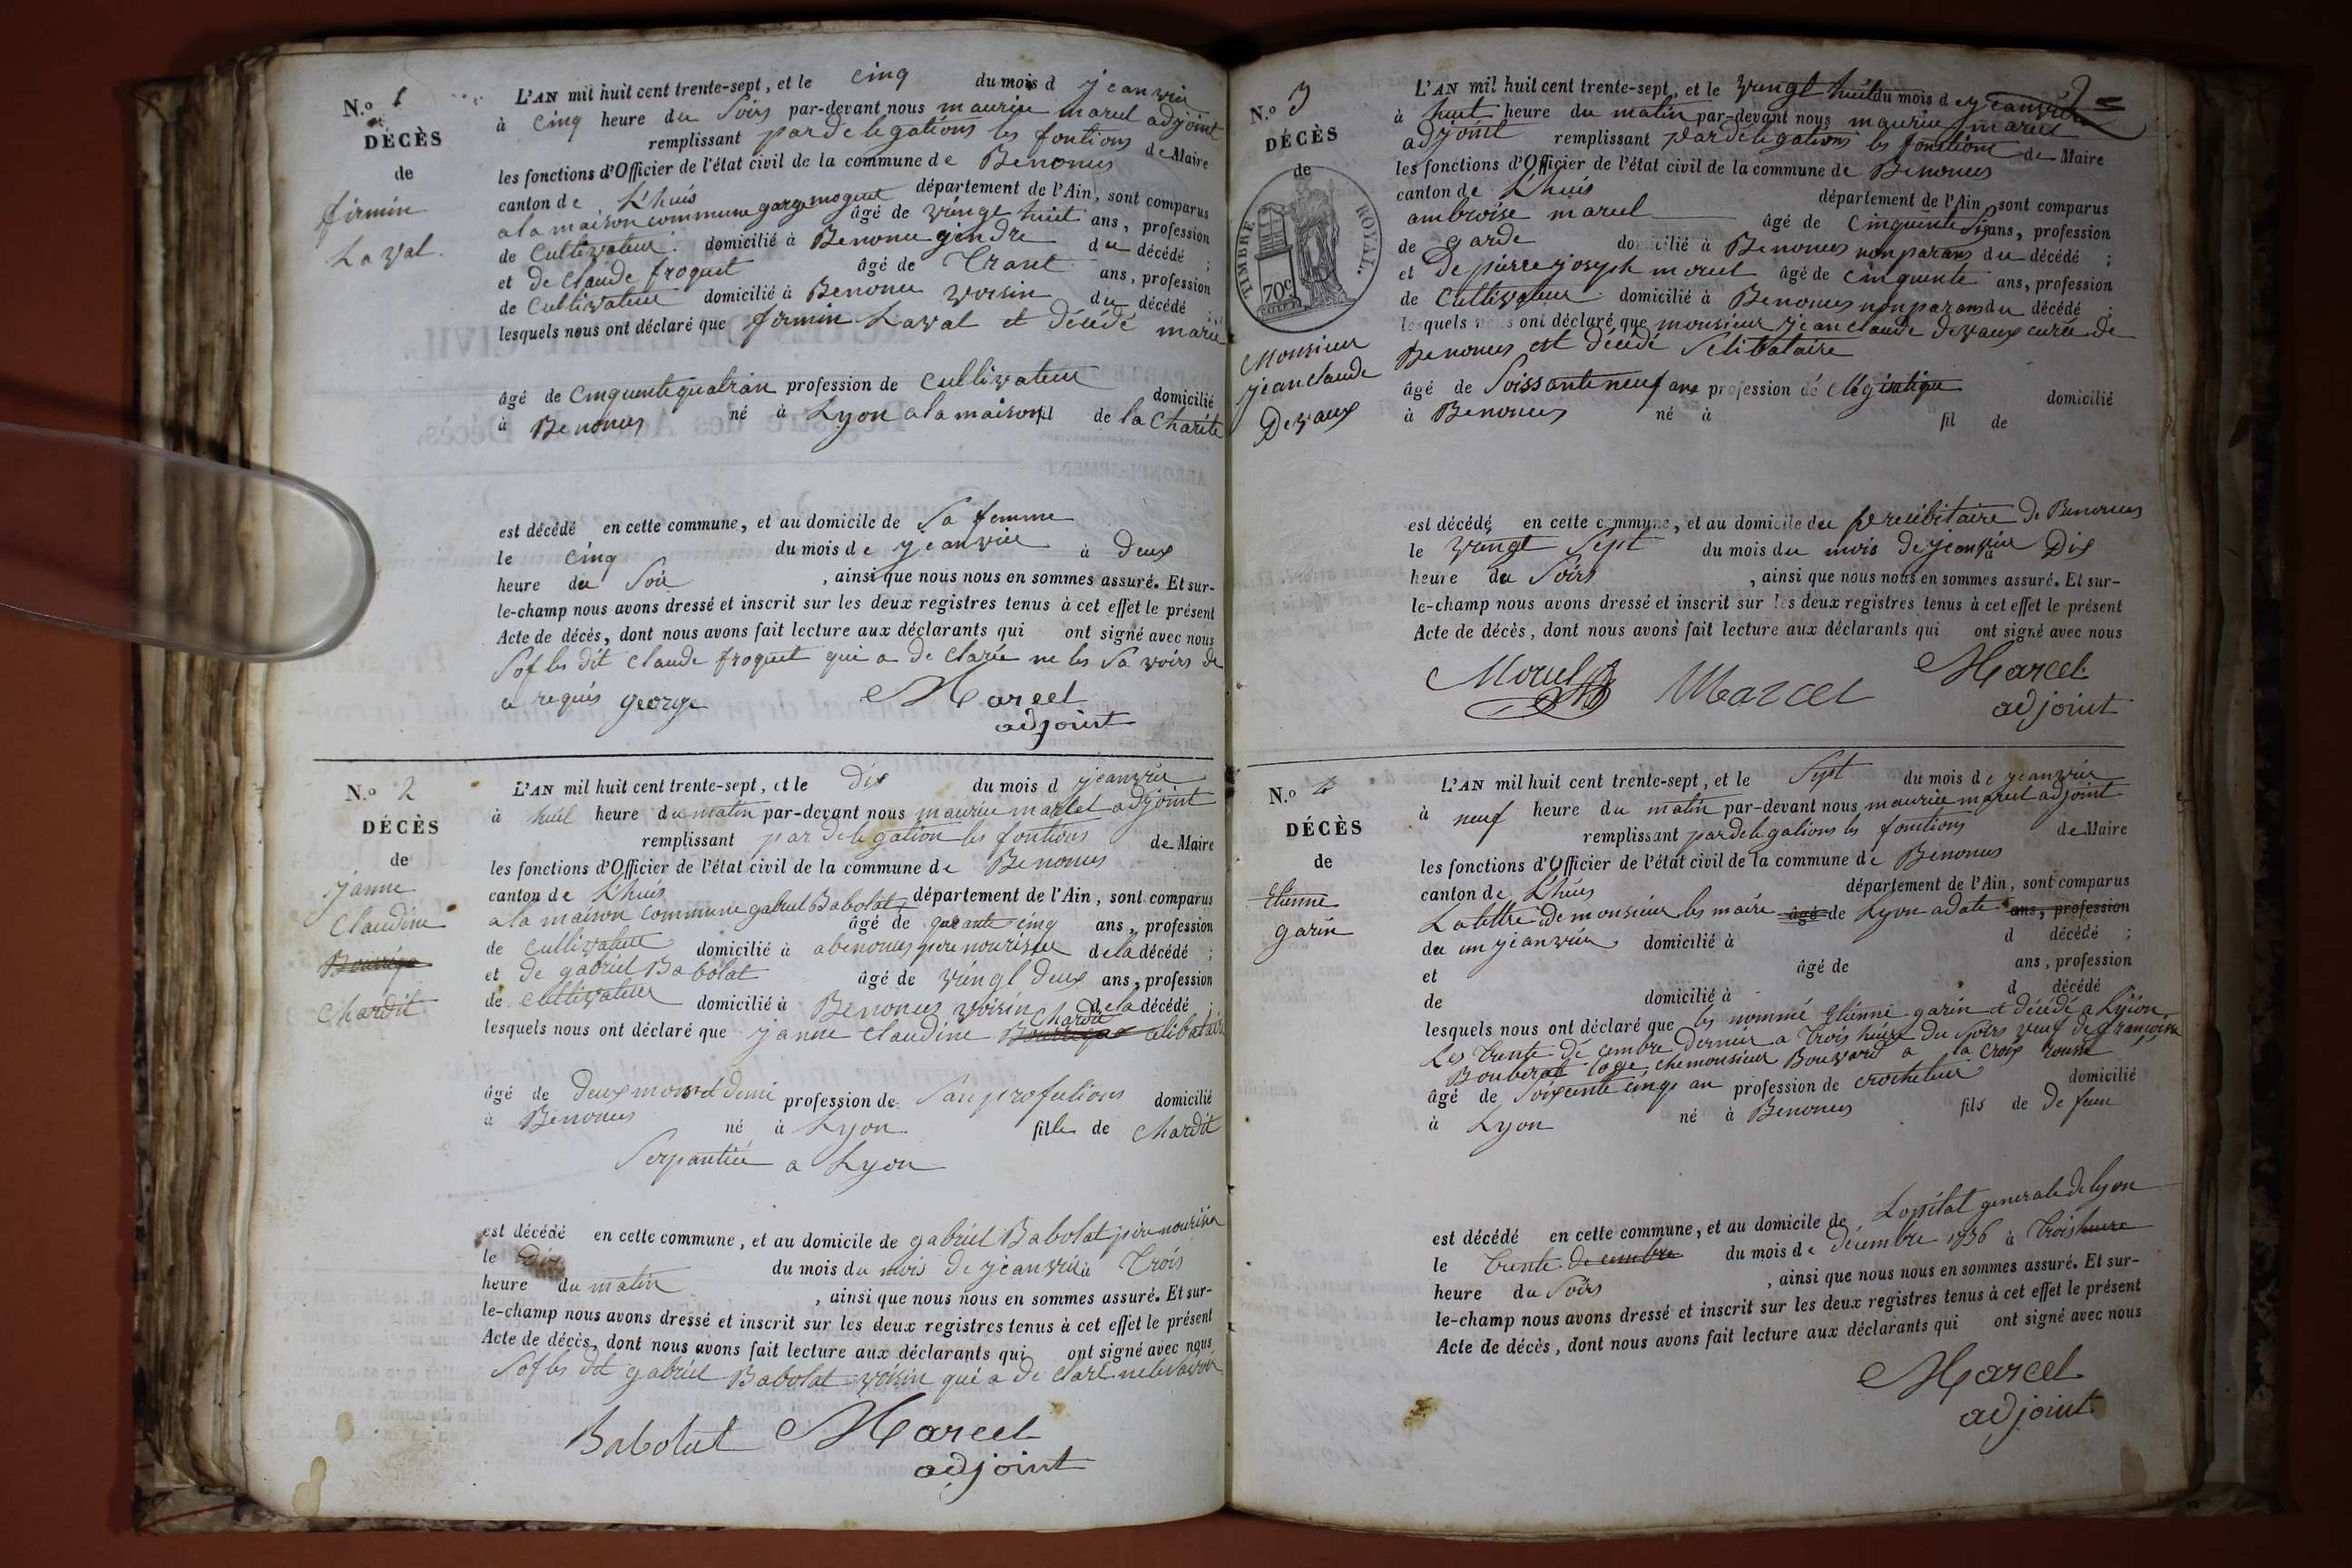 N.o 1
DÉCÈS
de
firmin
Laval.
L'AN mil huit cent trente-sept, et le cinq du mois d jeanvier
à cinq heure du Soirs par-devant nous maurice marcel adjoint
remplissant par delegations les fontions de Maire
les fonctions d'Officier de l'état civil de la commune de Benonces
canton de L'huis département de l'Ain, sont comparus
a la maison commune george moguet âgé de vingt huit ans, profession
de Cultivateur domicilié à Benonce gendre du décédé ;
et de Claude froquet âgé de Trant ans, profession
de Cultivateur domicilié à Benonce voisin du décédé ;
lesquels nous ont déclaré que firmin Laval et décédé marié
âgé de Cinquente quatr an profession de Cultivateur domicilié
à Benonces né à Lyon a la maison fil de la Charité
est décédé en cette commune, et au domicile de Sa femme
le cinq du mois de jeanvier à Deux
heure du Soir , ainsi que nous nous en sommes assuré. Et sur-
le-champ nous avons dressé et inscrit sur les deux registres tenus à cet effet le présent
Acte de décès, dont nous avons fait lecture aux déclarants qui ont signé avec nous
Sof les dit Claude froquet qui a de clarée ne les Sa voirs de
ce requis george Marcel
adjoint
N.o 2
DÉCÈS
de
janne
Claudine
Chardit
L'AN mil huit cent trente-sept, et le dix du mois d jeanvier
à huit heure du matin par-devant nous maurice marcel adjoint
remplissant par delegation les fontions de Maire
les fonctions d'Officier de l'état civil de la commune de Benonces
canton de L'huis département de l'Ain, sont comparus
a la maison commune gabriel Babolat âgé de quarante cinq ans, profession
de Cultivateur domicilié à a benonces pere nourisier de la décédé ;
et de gabriel Babolat âgé de vingt Deux ans, profession
de Cultivateur domicilié à Benonces voisin de la décédé ;
Chardit
lesquels nous ont déclaré que janne Claudine celibataire
âgé de Deux mois et demi profession de San profesions domicilié
à Benonces né à Lyon fille de Chardit
Serpantiée a Lyon
est décédé en cette commune, et au domicile de gabriel Babolat père nourisier
le Dix du mois du mois de jeanvier à Trois
heure du matin , ainsi que nous nous en sommes assuré. Et sur-
le-champ nous avons dressé et inscrit sur les deux registres tenus à cet effet le présent
Acte de décès, dont nous avons fait lecture aux déclarants qui ont signé avec nous
Sof les dit gabriel Babolat voisin qui a de claré ne les savoir
Babolat Marcel
adjoint
N.o 3
DÉCÈS
de
TIMBRE ROYAL.
70c
Monsieur
jean Claude
Devaux
L'AN mil huit cent trente-sept, et le vingt huit du mois de jeanvier
à huit heure du matin par-devant nous maurice marcel
adjoint remplissant par delegations les fonctions de Maire
les fonctions d'Officier de l'état civil de la commune de Benonces
canton de L'huis département de l'Ain, sont comparus
ambroise marcel âgé de Cinquente Six ans, profession
de garde domicilié à Benonces non parans du décédé ;
et de pierre joseph moruel âgé de cinquente ans, profession
de Cultivateur domicilié à Benonces non parans du décédé ;
lesquels nous ont déclaré que monsieur jean claude devaux curée de
Benonces est décédé Selibataire
âgé de Soissante neuf ans profession de Elégisatique domicilié
à Benonces né à fil de
est décédé en cette commune, et au domicile du presibitaire de Benonces
le vingt Sept du mois du mois de jeanvier à Dix
heure du Soirs , ainsi que nous nous en sommes assuré. Et sur-
le-champ nous avons dressé et inscrit sur les deux registres tenus à cet effet le présent
Acte de décès, dont nous avons fait lecture aux déclarants qui ont signé avec nous
Moruel Marcel Marcel
adjoint
N.o 4
DÉCÈS
de
Etienne
garin
L'AN mil huit cent trente-sept, et le Sept du mois de jeanvier
à neuf heure du matin par-devant nous maurice marcel adjoint
remplissant par delegations les fonctions de Maire
les fonctions d'Officier de l'état civil de la commune de Benonces
canton de L'huis département de l'Ain, sont comparus
La lettre de monsieur les maire âgé de Lyon a date ans, profession
du un jeanvier domicilié à d décédé ;
et âgé de ans, profession
de domicilié à d décédé
lesquels nous ont déclaré que les nommé Etienne garin et décédé a Lyion
Les trente dé cembre Dernier a trois heure du Soirs veuf de françoise
Bouberat logé che monsieur Bouvard a la Croix rousse
âgé de Soixente cinqs an profession de crocheteur domicilié
à Lyon né à Benonces fils de de feu
est décédé en cette commune, et au domicile de Lopital generale de lyon
le trente de cembre du mois de decembre 1836 à trois heure
heure du Soirs , ainsi que nous nous en sommes assuré. Et sur-
le-champ nous avons dressé et inscrit sur les deux registres tenus à cet effet le présent
Acte de décès, dont nous avons fait lecture aux déclarants qui ont signé avec nous
Marcel
adjoint